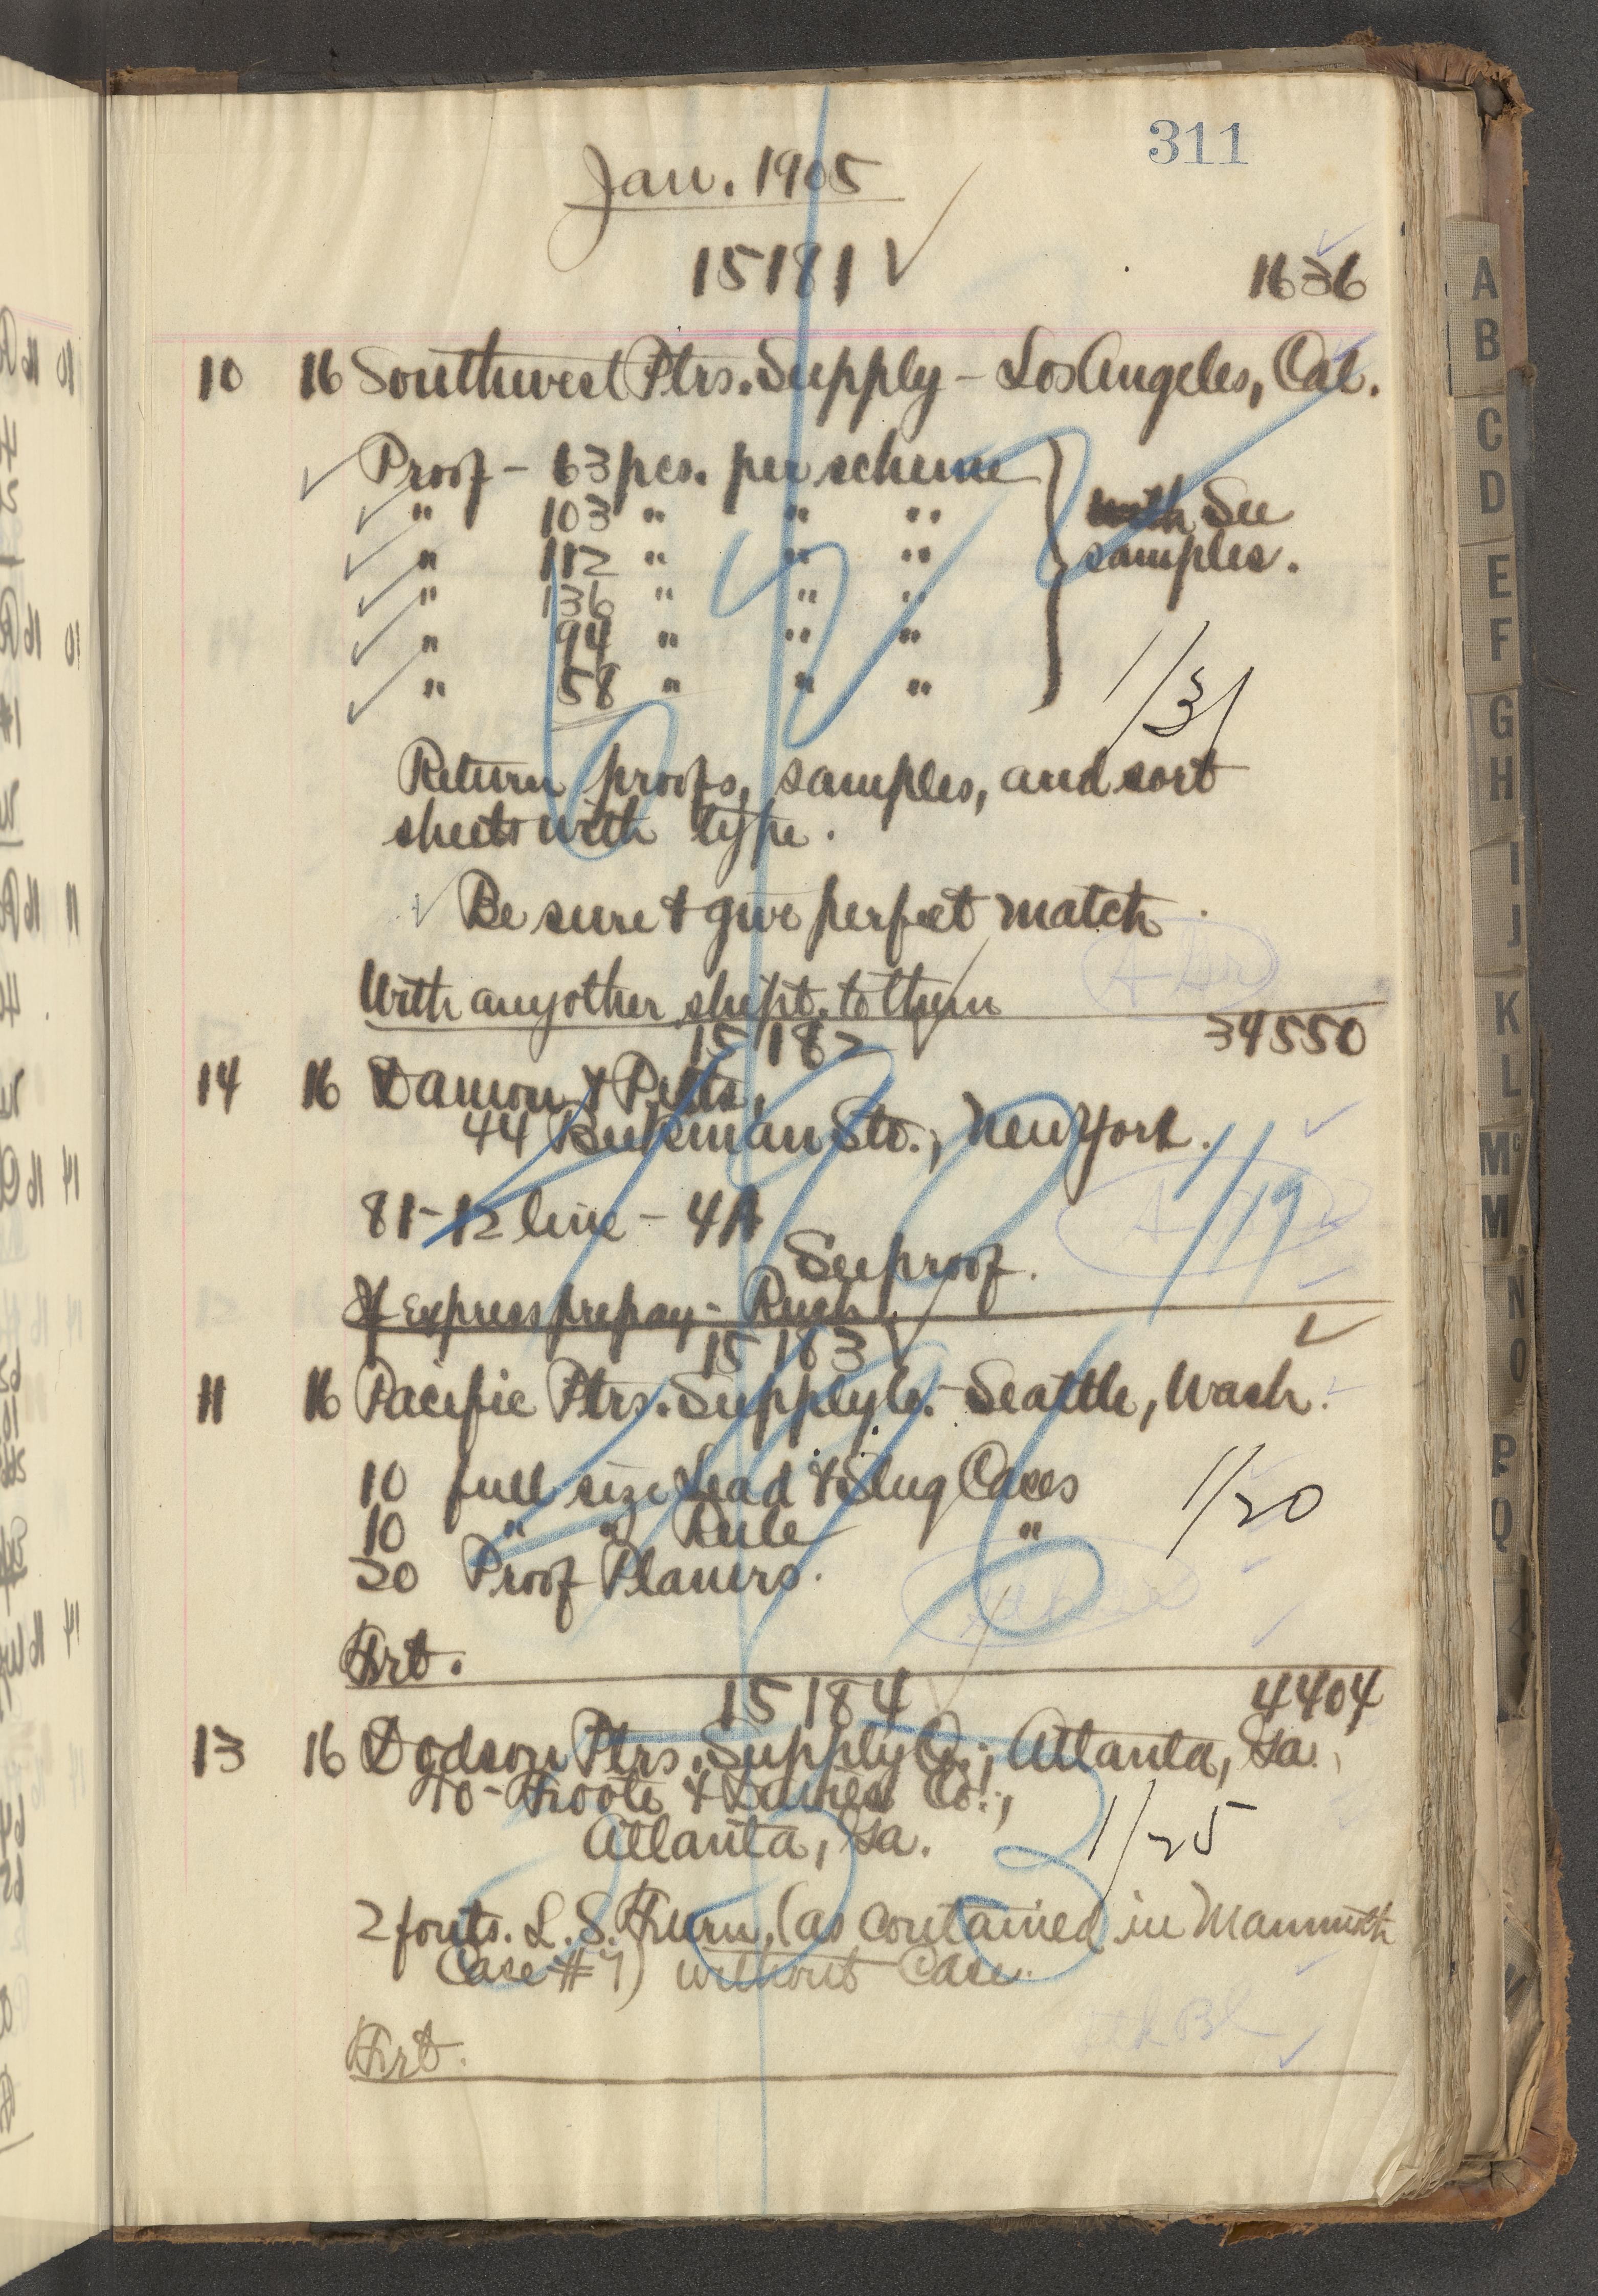 311
Jan. 1905
15181 ✓ 1636
10 16 Southwest Ptrs. Supply - Los Angeles, Cal.
✓ Proof - 63 pcs. per scheme
✓ " 103 " " " See
✓ " 112 " " " samples.
✓ " 136 " " "
✓ " 94 " " "
✓ " 58 " " "
1/31
Return proofs, samples, and sort
sheets with type.
✓ Be sure & give perfect match
With any other shipt. to them
15182 ✓ 34550
14 16 Damon & Peets,
44 Beekman Str., New York.
81-12 line - 4A 1/19
See proof.
If express prepay - Rush
15183 ✓
11 16 Pacific Ptrs. Supply Co. - Seattle, Wash.
10 full size Lead & Slug Cases 1/20
10 " " Rule "
20 Proof Planers.
Frt.
15184 4404
13 16 Dodson Ptrs. Supply Co., Atlanta, Ga.
to - Foote & Davies Co.,
Atlanta, Ga. 1/25
2 fonts. L. S. Furn. (as contained in Mammoth
Case #7) without Case.
Frt.
A
B
C
D
E
F
G
H
I
J
K
L
Mc
M
N
O
P
Q